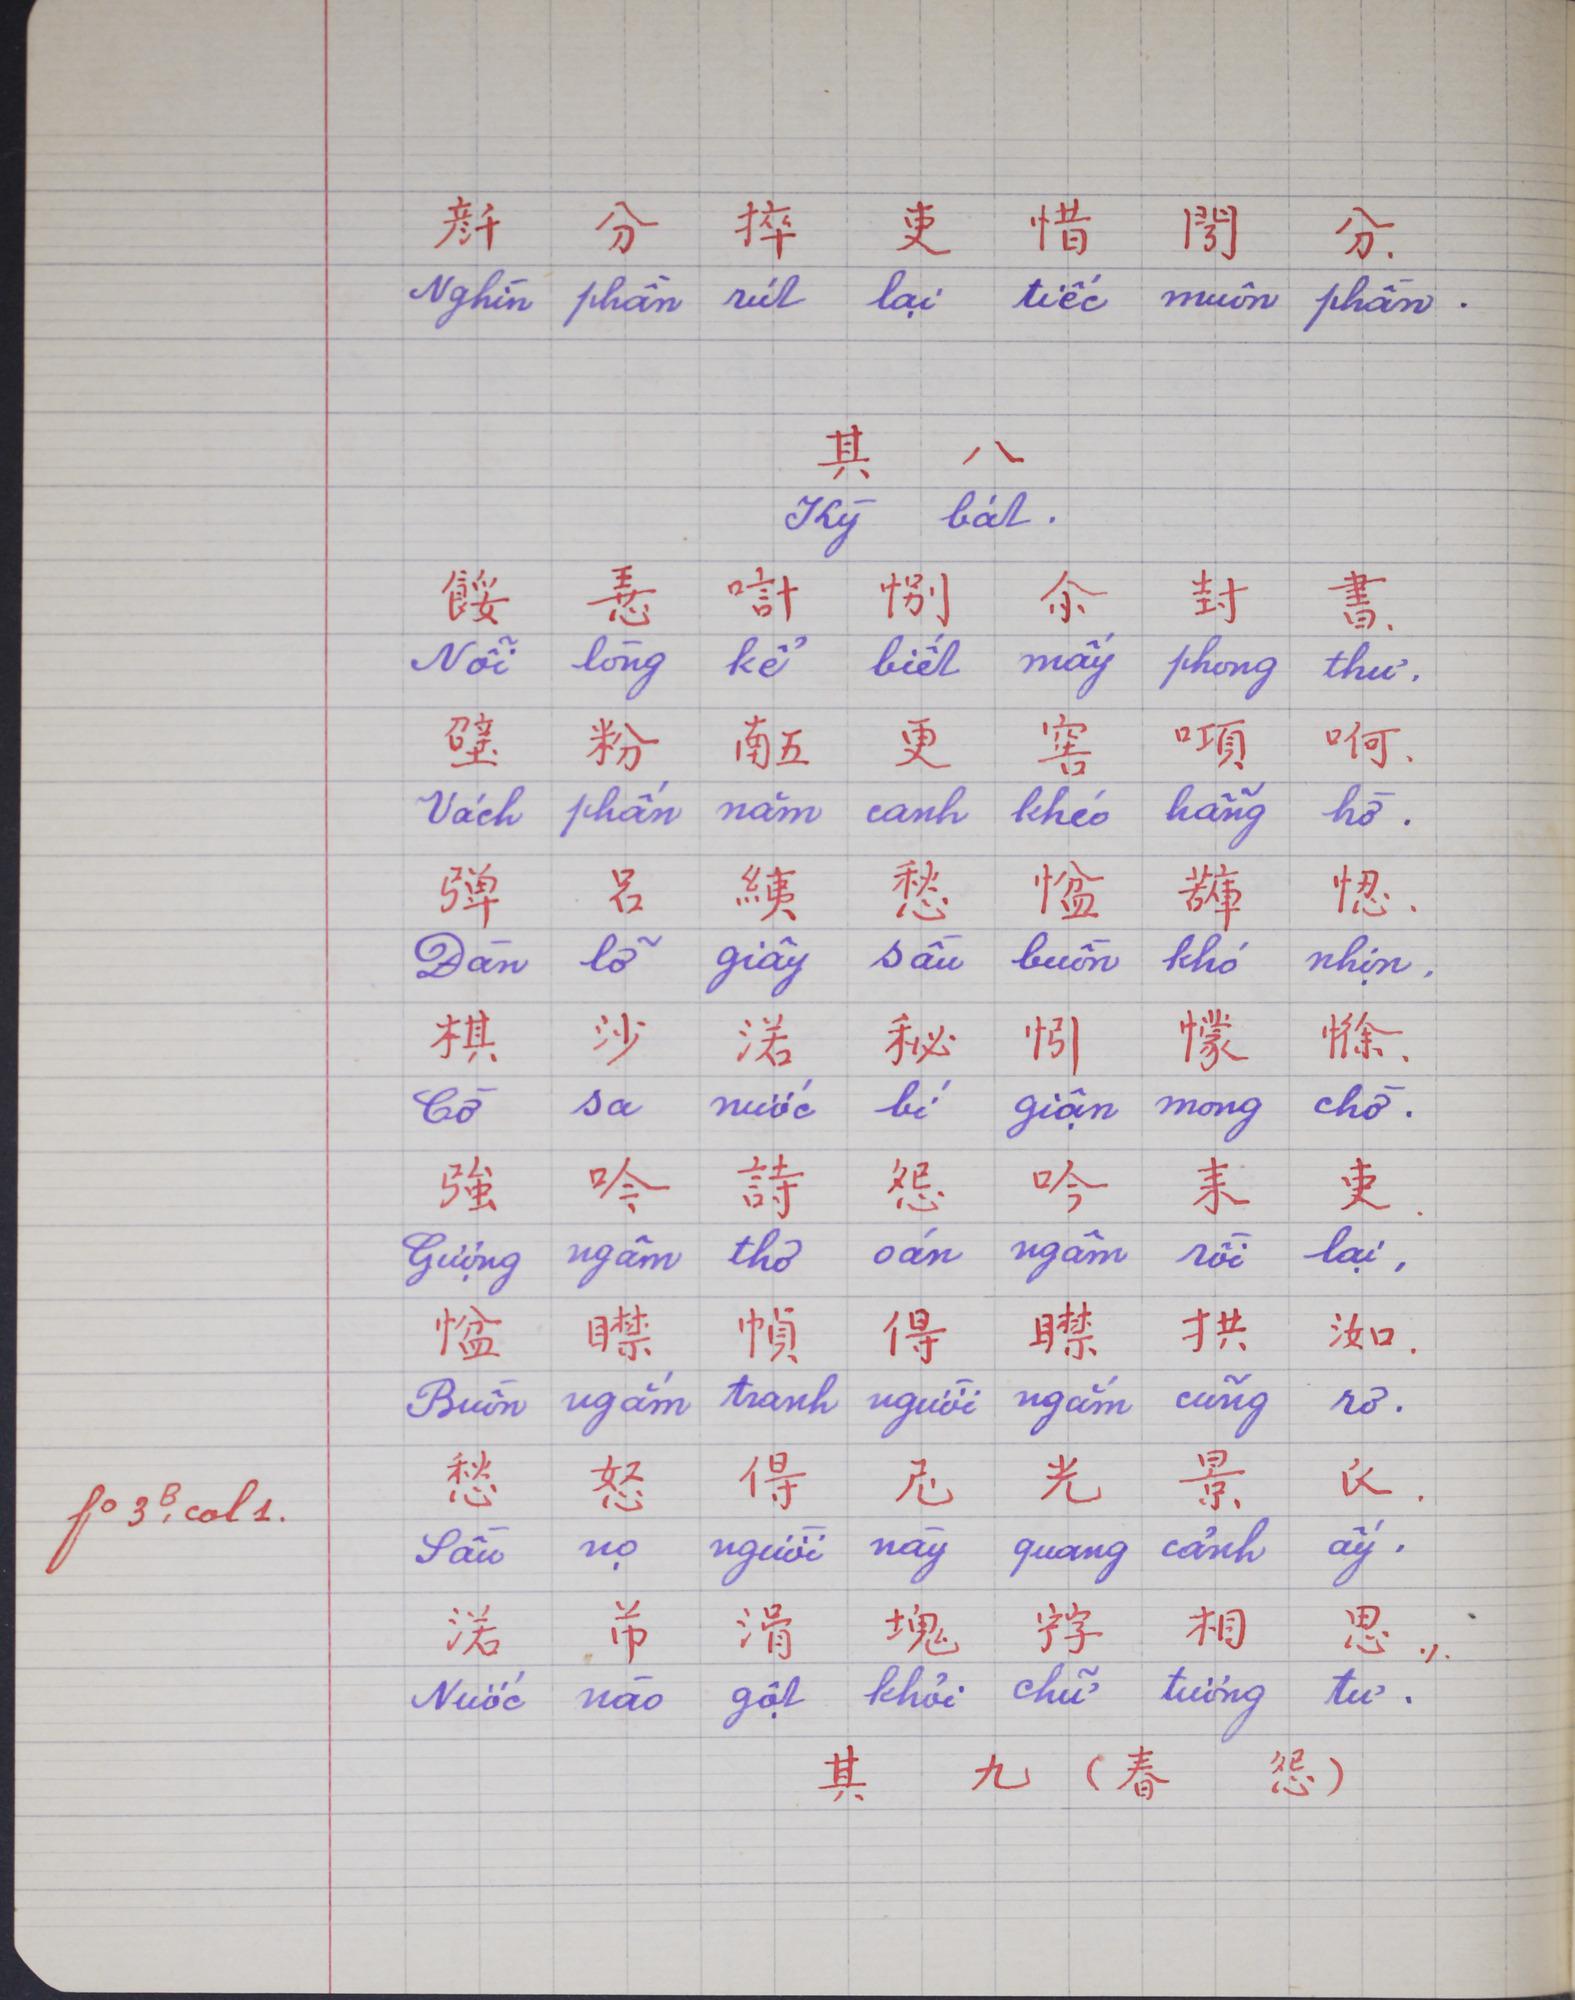 𠦳 分 捽 吏 惜 𨷈 分.
Nghìn phần rút lại tiếc muôn phần.
其 八
Kỳ bát.
餒 𢚸 計 別 余 封 書.
Nỗi lòng kể biết mấy phong thư.
壁 粉 𠄼 更 窖 項 㗿.
Vách phấn năm canh khéo hẵng hờ.
弹 呂 愁 㤓 𧁷 𢚹.
Đàn lỡ giây sầu buồn khó nhịn.
棋 沙 渃 秘 㤆 懞 㗂.
Cờ sa nước bí giận mong chờ.
強 吟 詩 怨 吟 耒 吏.
Gượng ngâm thơ oán ngâm rồi lại,
㤓 㬗 幀 得 㬗 拱 洳.
Buồn ngắm tranh người ngắm cũng rơ.
愁 怒 得 尼 光 景 氏.
fo 3B, col 1.
Sầu nọ người này quang cảnh ấy.
渃 芇 滑 塊 𡨸 相 思 ./.
Nước nào gột khỏi chữ tương tư.
其 九 (春 怨)